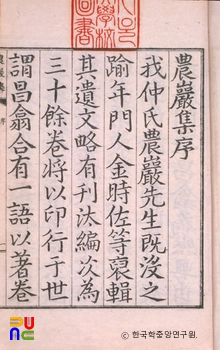 農巖集序
我仲氏農巖先生旣沒之
踰年門人金時佐等裒輯
其遺文略有刊汰編次為
三十餘卷將以印行于世
謂昌翕合有一語以著卷
圖書
© 한국학중앙연구원